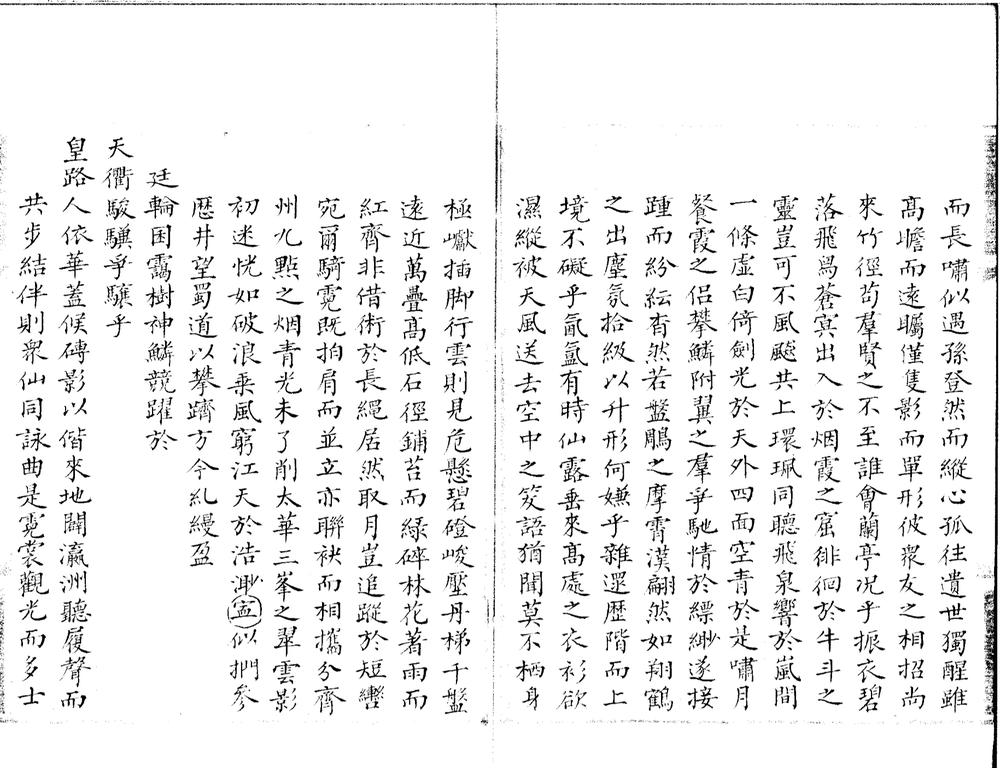 而長嘯似遇孫登然而縱心孤往遺世獨醒雖
高嶦而遠矚僅隻影而單形彼衆友之相招尚
來竹徑苟羣賢之不至誰會蘭亭况乎振衣碧
落飛舄蒼冥出入於烟霞之窟徘徊於牛斗之
靈豈可不風颷共上環珮同聽飛泉響於嵐間
一條虛白倚劍光於天外四面空青於是嘯月
餐霞之侶攀鱗附翼之羣爭馳情於縹緲遂接
踵而紛紜杳然若盤鵰之摩霄漢翩然如翔鶴
之出塵氛拾級以升形何嫌乎雜遝歷階而上
境不礙乎氤氳有時仙露垂來高處之衣衫欲
濕縱被天風送去空中之笑語猶聞莫不栖身
極巘插脚行雲則見危懸碧磴峻壓丹梯千盤
遠近萬疊高低石徑鋪苔而綠碎林花著雨而
紅齊非借術於長繩居然取月豈追蹤於短轡
宛爾騎霓既拍肩而並立亦聯袂而相攜分齊
州九點之烟青光未了削太華三峯之翠雲影
初迷恍如破浪乘風窮江天於浩渺寔似捫參
歷井望蜀道以攀躋方今糺縵盈
廷輪囷靄樹神鱗競躍於
天衢駿驥爭驤乎
皇路人依華蓋候磚影以偕來地闢瀛洲聽履聲而
共步結伴則衆仙同詠曲是霓裳觀光而多士